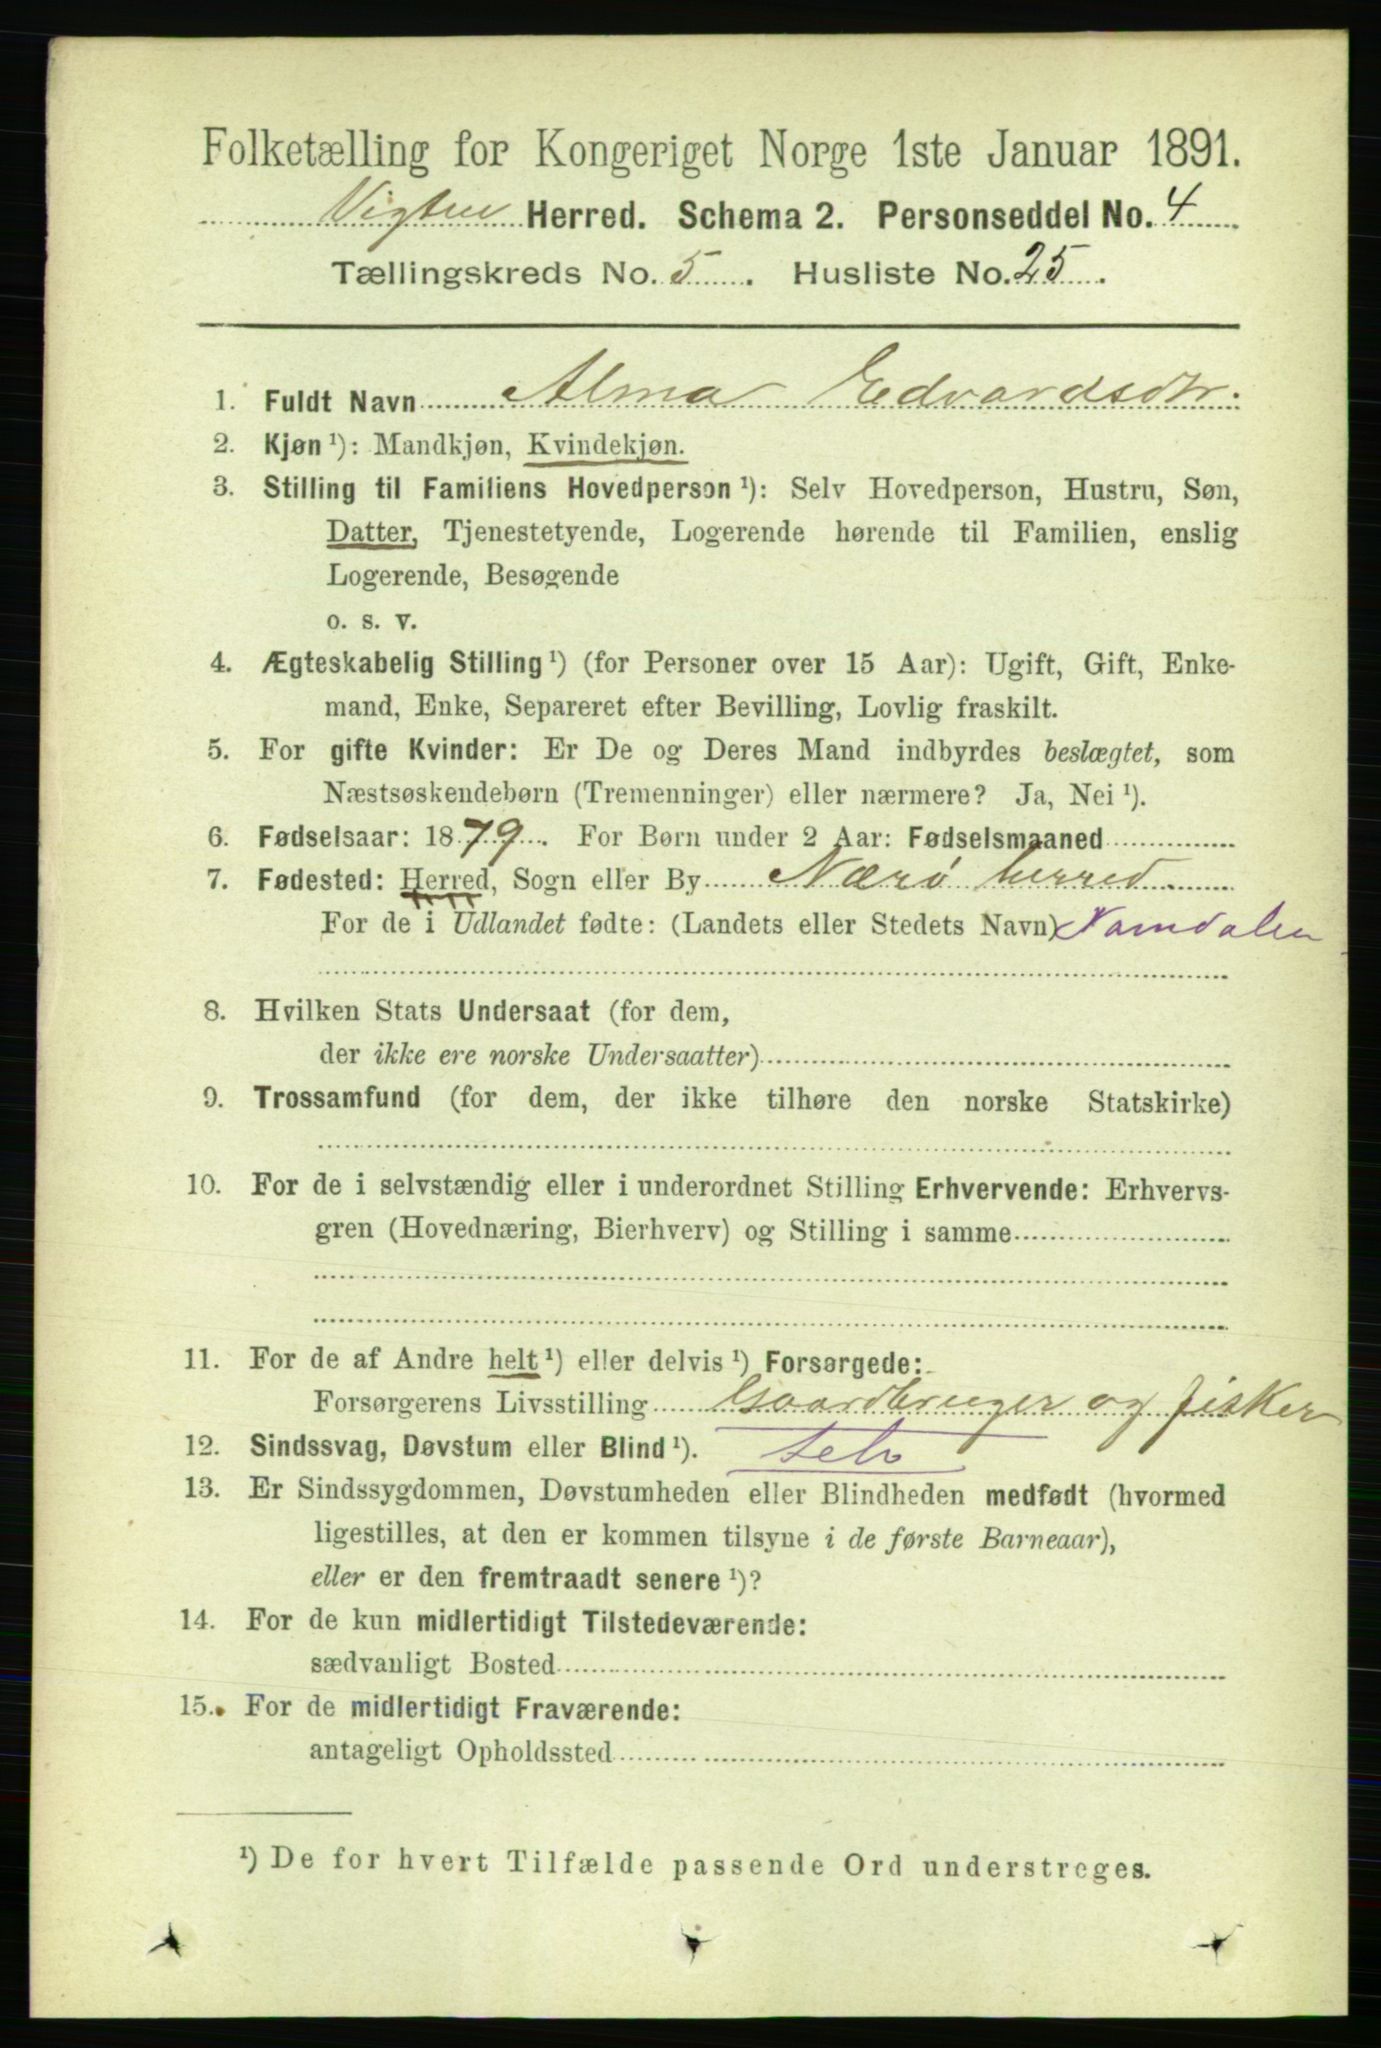 Folketælling for Kongeriget Norge 1ste Januar 1891.
Vigten Herred. Schema 2. Personseddel No. 4
Tællingskreds No. 5. Husliste No. 25.
1. Fuldt Navn Alma Edvardsdtr.
2. Kjøn ¹): Mandkjøn, Kvindekjøn.
3. Stilling til Familiens Hovedperson ¹): Selv Hovedperson, Hustru, Søn,
Datter, Tjenestetyende, Logerende hørende til Familien, enslig
Logerende, Besøgende
o. s. v.
4. Ægteskabelig Stilling ¹) (for Personer over 15 Aar): Ugift, Gift, Enke-
mand, Enke, Separeret efter Bevilling, Lovlig fraskilt.
5. For gifte Kvinder: Er De og Deres Mand indbyrdes beslægtet, som
Næstsøskendebørn (Tremenninger) eller nærmere? Ja, Nei ¹).
6. Fødselsaar: 1879. For Børn under 2 Aar: Fødselsmaaned
7. Fødested: Herred, Sogn eller By Nærö herred
For de i Udlandet fødte: (Landets eller Stedets Navn) Namdalen
8. Hvilken Stats Undersaat (for dem,
der ikke ere norske Undersaatter)
9. Trossamfund (for dem, der ikke tilhøre den norske Statskirke)
10. For de i selvstændig eller i underordnet Stilling Erhvervende: Erhvervs-
gren (Hovednæring, Bierhverv) og Stilling i samme
11. For de af Andre helt ¹) eller delvis ¹) Forsørgede:
Forsørgerens Livsstilling Gaardbruger og fisker
12. Sindssvag, Døvstum eller Blind ¹). selv
13. Er Sindssygdommen, Døvstumheden eller Blindheden medfødt (hvormed
ligestilles, at den er kommen tilsyne i de første Barneaar),
eller er den fremtraadt senere ¹)?
14. For de kun midlertidigt Tilstedeværende:
sædvanligt Bosted
15. For de midlertidigt Fraværende:
antageligt Opholdssted
¹) De for hvert Tilfælde passende Ord understreges.